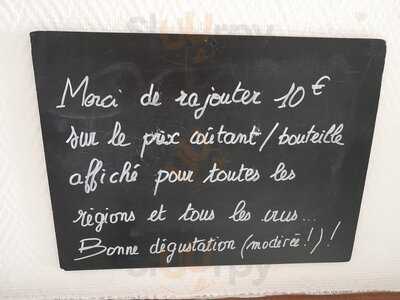 Merci de rajouter 10€
sur le prix coûtant/bouteille
affiché pour toutes les
régions et tous les crus...
Bonne dégustation (modérée!)!